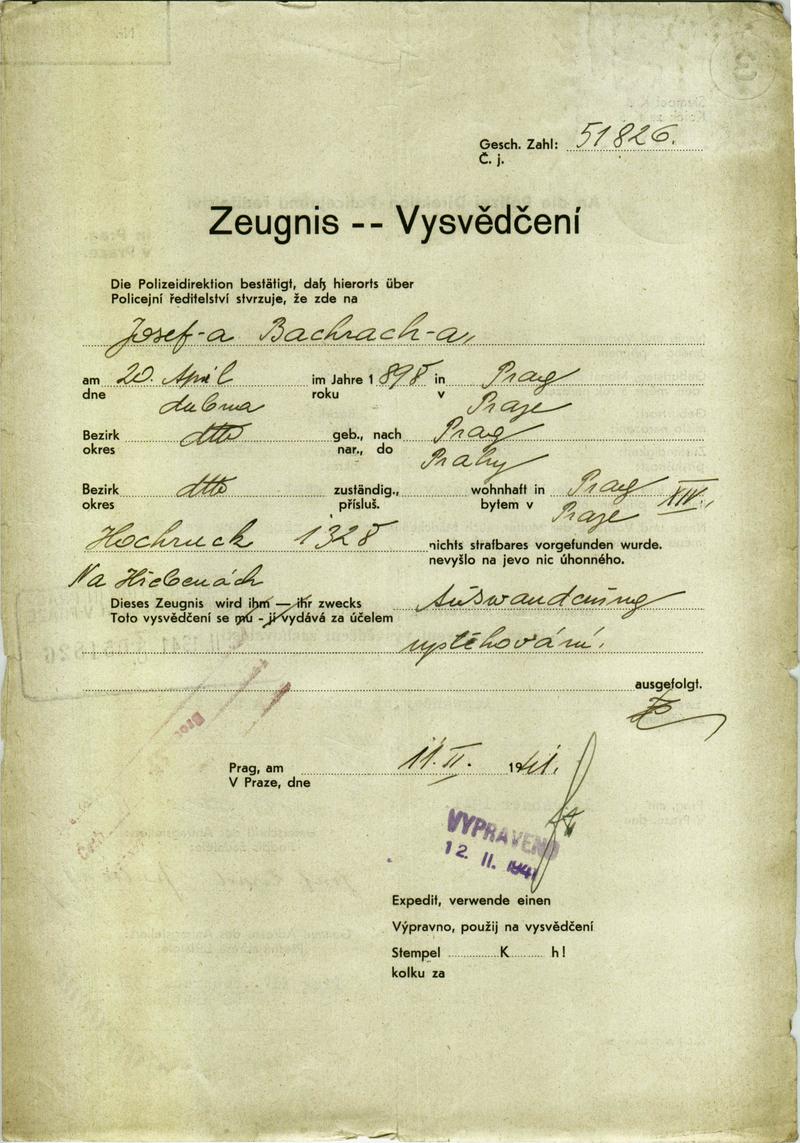 Gesch. Zahl: 51826.
Č. j.
Zeugnis -- Vysvědčení
Die Polizeidirektion bestätigt, daß hierorts über
Policejní ředitelství stvrzuje, že zde na
Josef-a Bachrach-a,
am 20. April im Jahre 1 898 in Prag
dne dubna roku v Praze
Bezirk dtto geb., nach Prag
okres nar., do Prahy
Bezirk dtto zuständig., wohnhaft in Prag XIV.,
okres přísluš. bytem v Praze
Hochruck 1328 nichts strafbares vorgefunden wurde.
nevyšlo na jevo nic úhonného.
Na Hřebenách
Dieses Zeugnis wird ihm — ihr zwecks Auswanderung
Toto vysvědčení se mu - jí vydává za účelem
vystěhování.
ausgefolgt.
Prag, am 11. II. 1941.
V Praze, dne
VYPRAVENO
12. II. 1941
Expedit, verwende einen
Výpravno, použij na vysvědčení
Stempel K h!
kolku za